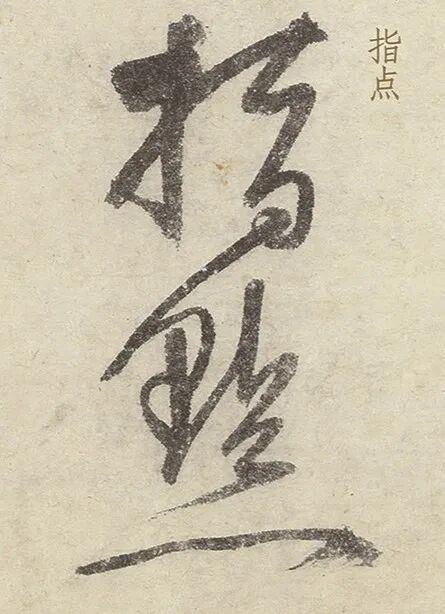 指點
指点